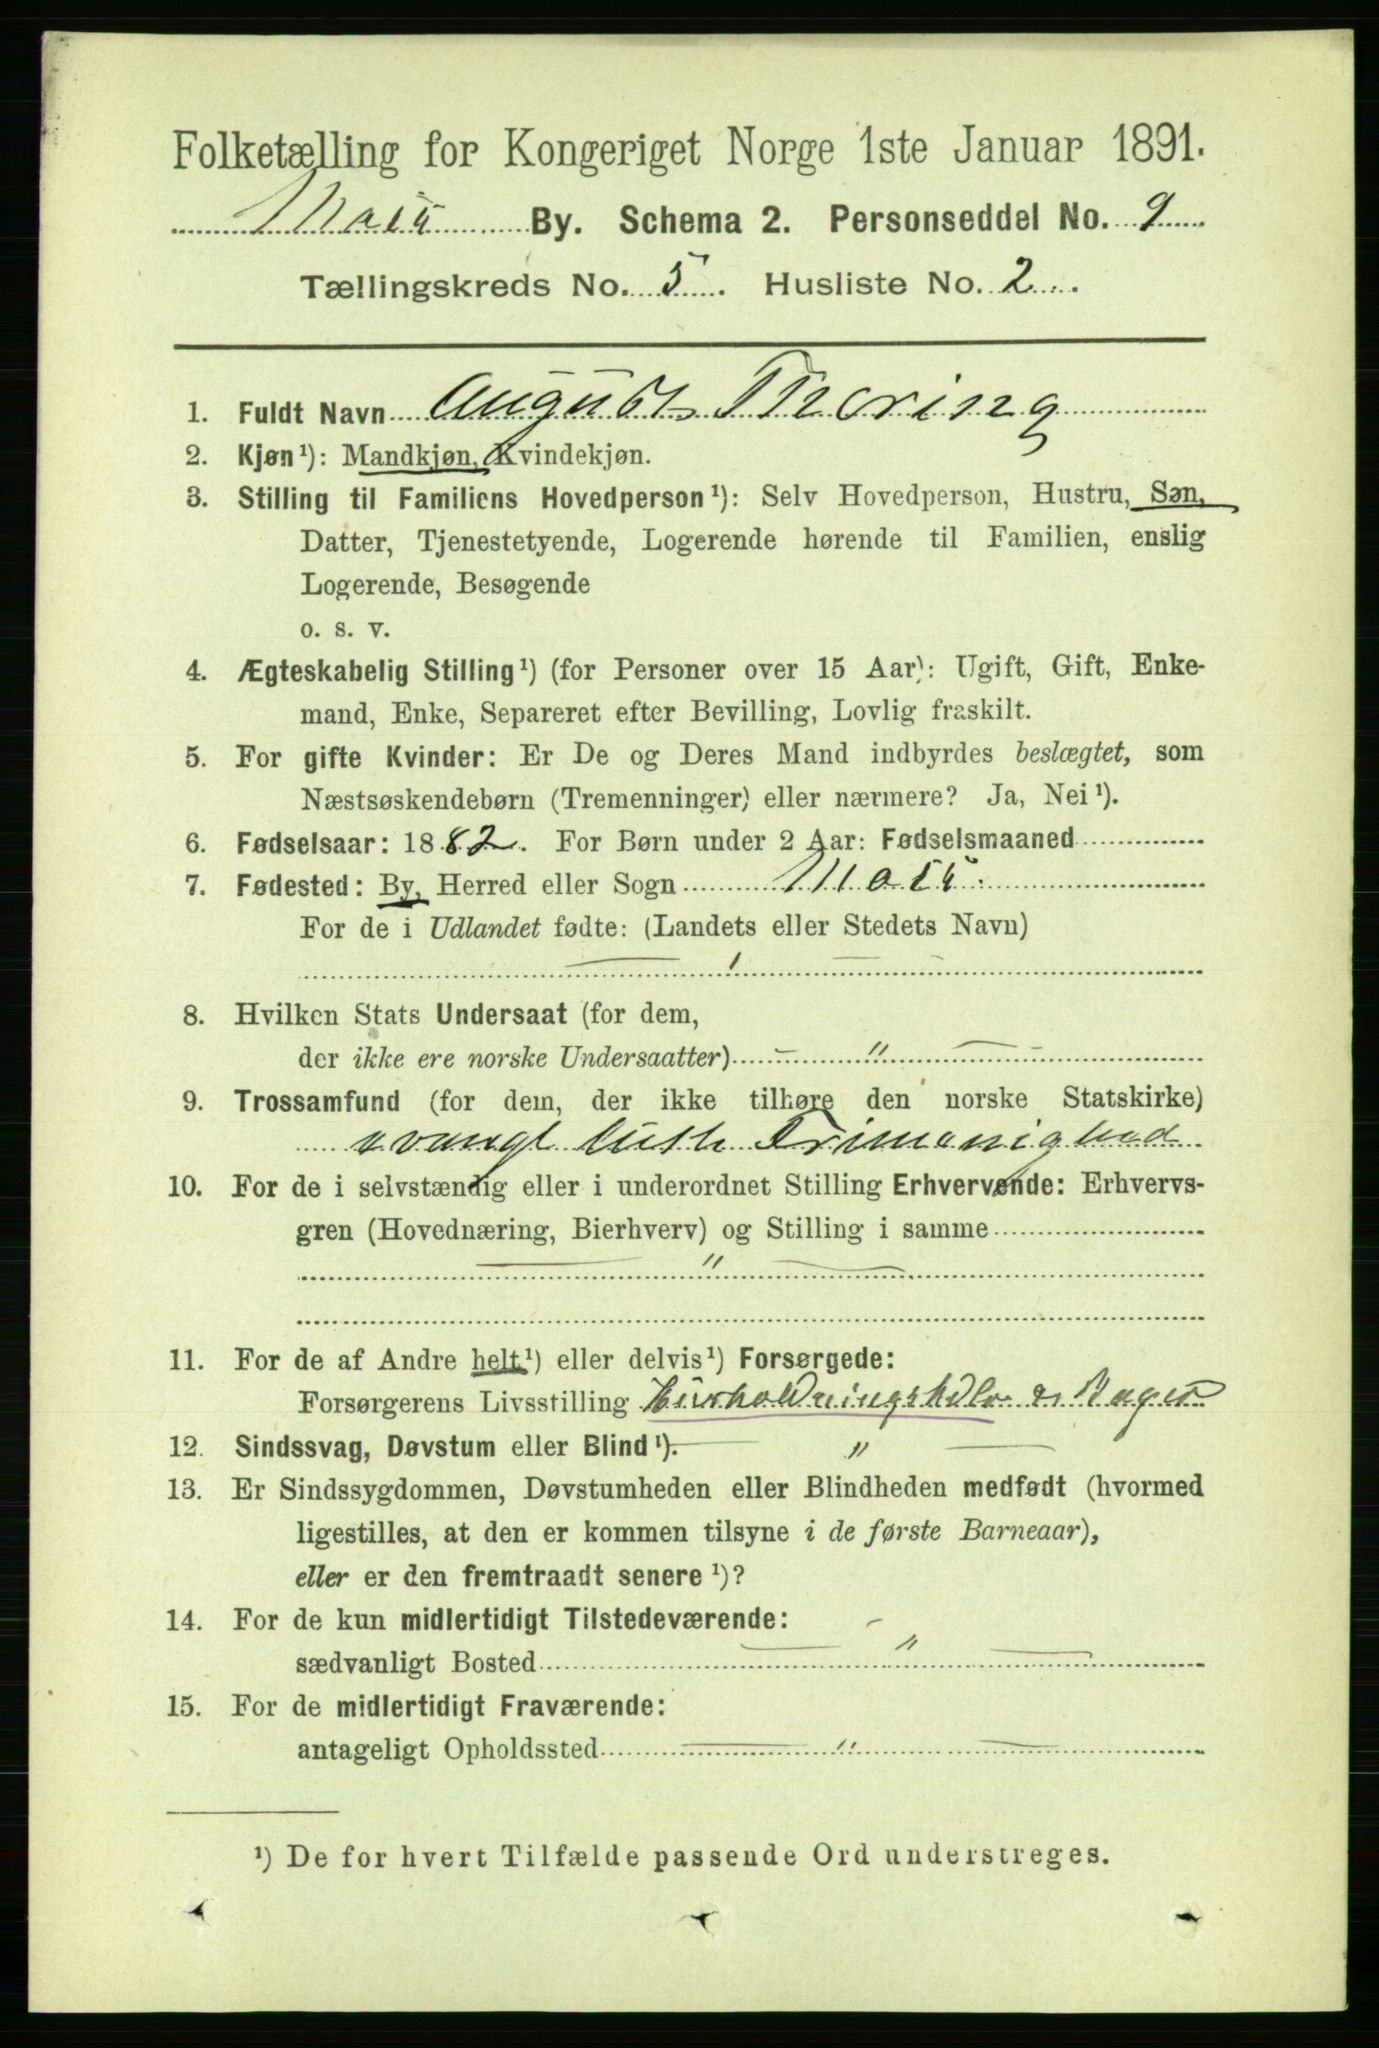 Folketælling for Kongeriget Norge 1ste Januar 1891.
Moss By. Schema 2. Personseddel No. 9
Tællingskreds No. 5. Husliste No. 2.
1. Fuldt Navn August Thoring
2. Kjøn¹): Mandkjøn, Kvindekjøn.
3. Stilling til Familiens Hovedperson¹): Selv Hovedperson, Hustru, Søn,
Datter, Tjenestetyende, Logerende hørende til Familien, enslig
Logerende, Besøgende
o. s. v.
4. Ægteskabelig Stilling¹) (for Personer over 15 Aar): Ugift, Gift, Enke-
mand, Enke, Separeret efter Bevilling, Lovlig fraskilt.
5. For gifte Kvinder: Er De og Deres Mand indbyrdes beslægtet, som
Næstsøskendebørn (Tremenninger) eller nærmere? Ja, Nei¹).
6. Fødselsaar: 1882. For Børn under 2 Aar: Fødselsmaaned
7. Fødested: By, Herred eller Sogn Moss.
For de i Udlandet fødte: (Landets eller Stedets Navn)
8. Hvilken Stats Undersaat (for dem,
der ikke ere norske Undersaatter) — " —
9. Trossamfund (for dem, der ikke tilhøre den norske Statskirke)
evangl luth Frimenighed
10. For de i selvstændig eller i underordnet Stilling Erhvervende: Erhvervs-
gren (Hovednæring, Bierhverv) og Stilling i samme
— " —
11. For de af Andre helt¹) eller delvis¹) Forsørgede:
Forsørgerens Livsstilling Husholdningshdlr & Bager
12. Sindssvag, Døvstum eller Blind¹). — " —
13. Er Sindssygdommen, Døvstumheden eller Blindheden medfødt (hvormed
ligestilles, at den er kommen tilsyne i de første Barneaar),
eller er den fremtraadt senere¹)?
14. For de kun midlertidigt Tilstedeværende:
sædvanligt Bosted — " —
15. For de midlertidigt Fraværende:
antageligt Opholdssted — " —
¹) De for hvert Tilfælde passende Ord understreges.